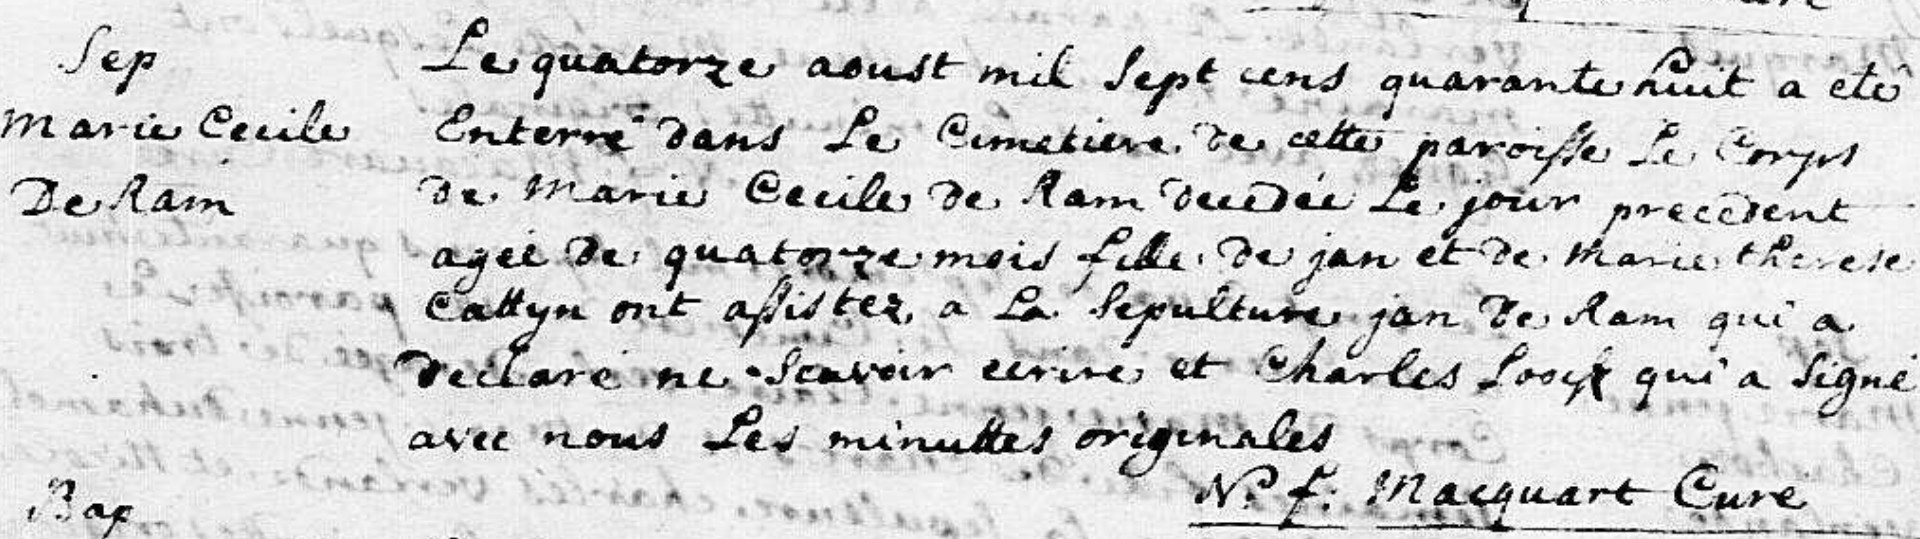 Sep
Marie Cecile
De Ram
Le quatorze aoust mil sept cens quarante huit a eté
Enterré dans Le Cimetiere de cette paroisse Le Corps
de Marie Cecile de Ram decedée Le jour precedent
agée de quatorze mois fille de jan et de Marie therese
Cattyn ont assistez a La Sepulture jan De Ram qui a
declaré ne Scavoir ecrire et Charles qui a Signé
avec nous Les minuttes originales
N. f. Macquart Curé
Bap